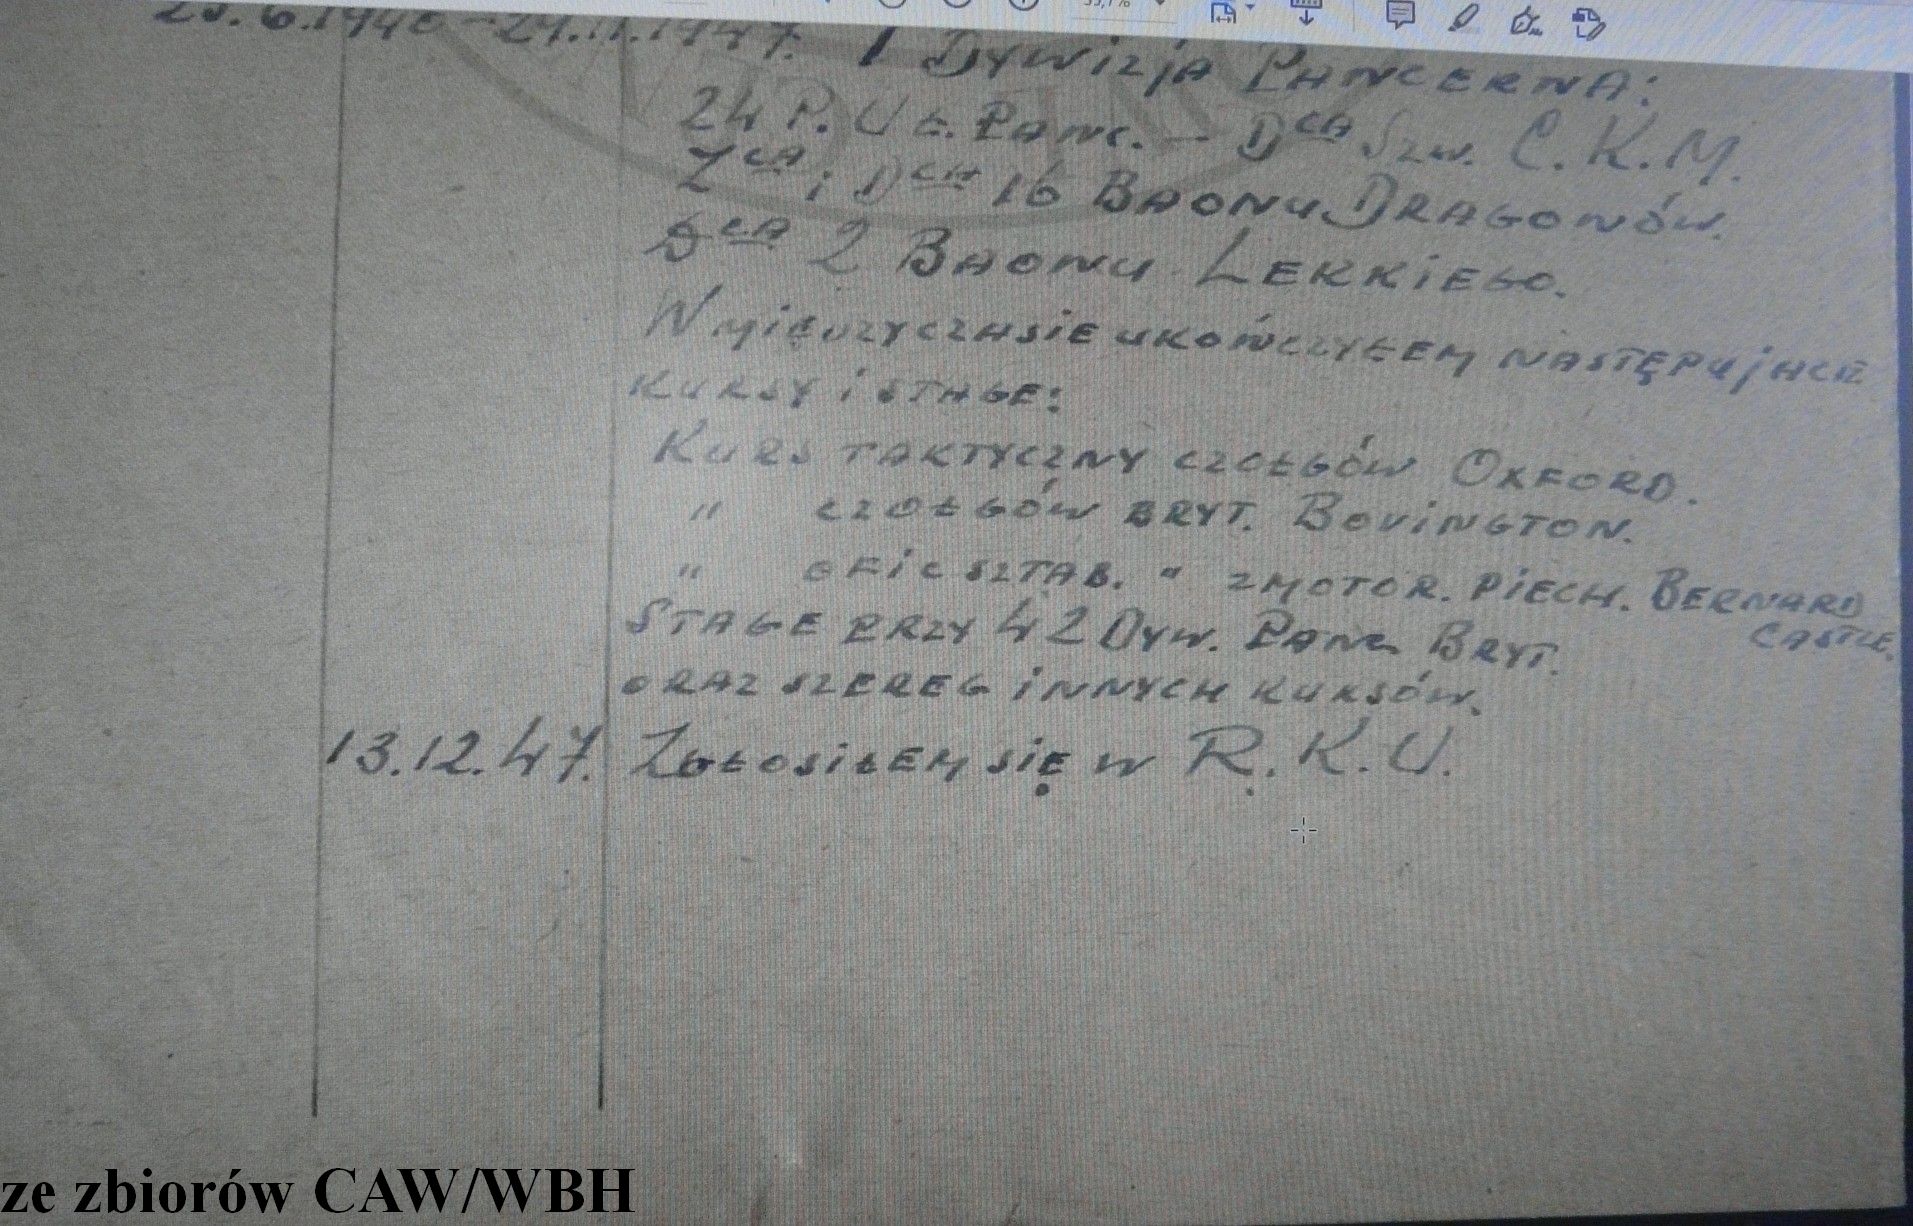 .6.1940 - 24.11.1947. 1 Dywizja Pancerna:
24 P. Uł. Panc. - Dca Szw. C.K.M.
Zca i Dca 16 Baonu Dragonów.
Dca 2 Baonu Lekkiego.
W międzyczasie ukończyłem następujące
kursy i stage:
Kurs taktyczny czołgów Oxford.
" czołgów bryt. Bovington.
" oficsztab. " zmotor. piech. Bernard
Castle.
Stage przy 42 Dyw. Panc. Bryt.
oraz szereg innych kursów.
13.12.47. Zgłosiłem się w R.K.U.
ze zbiorów CAW/WBH